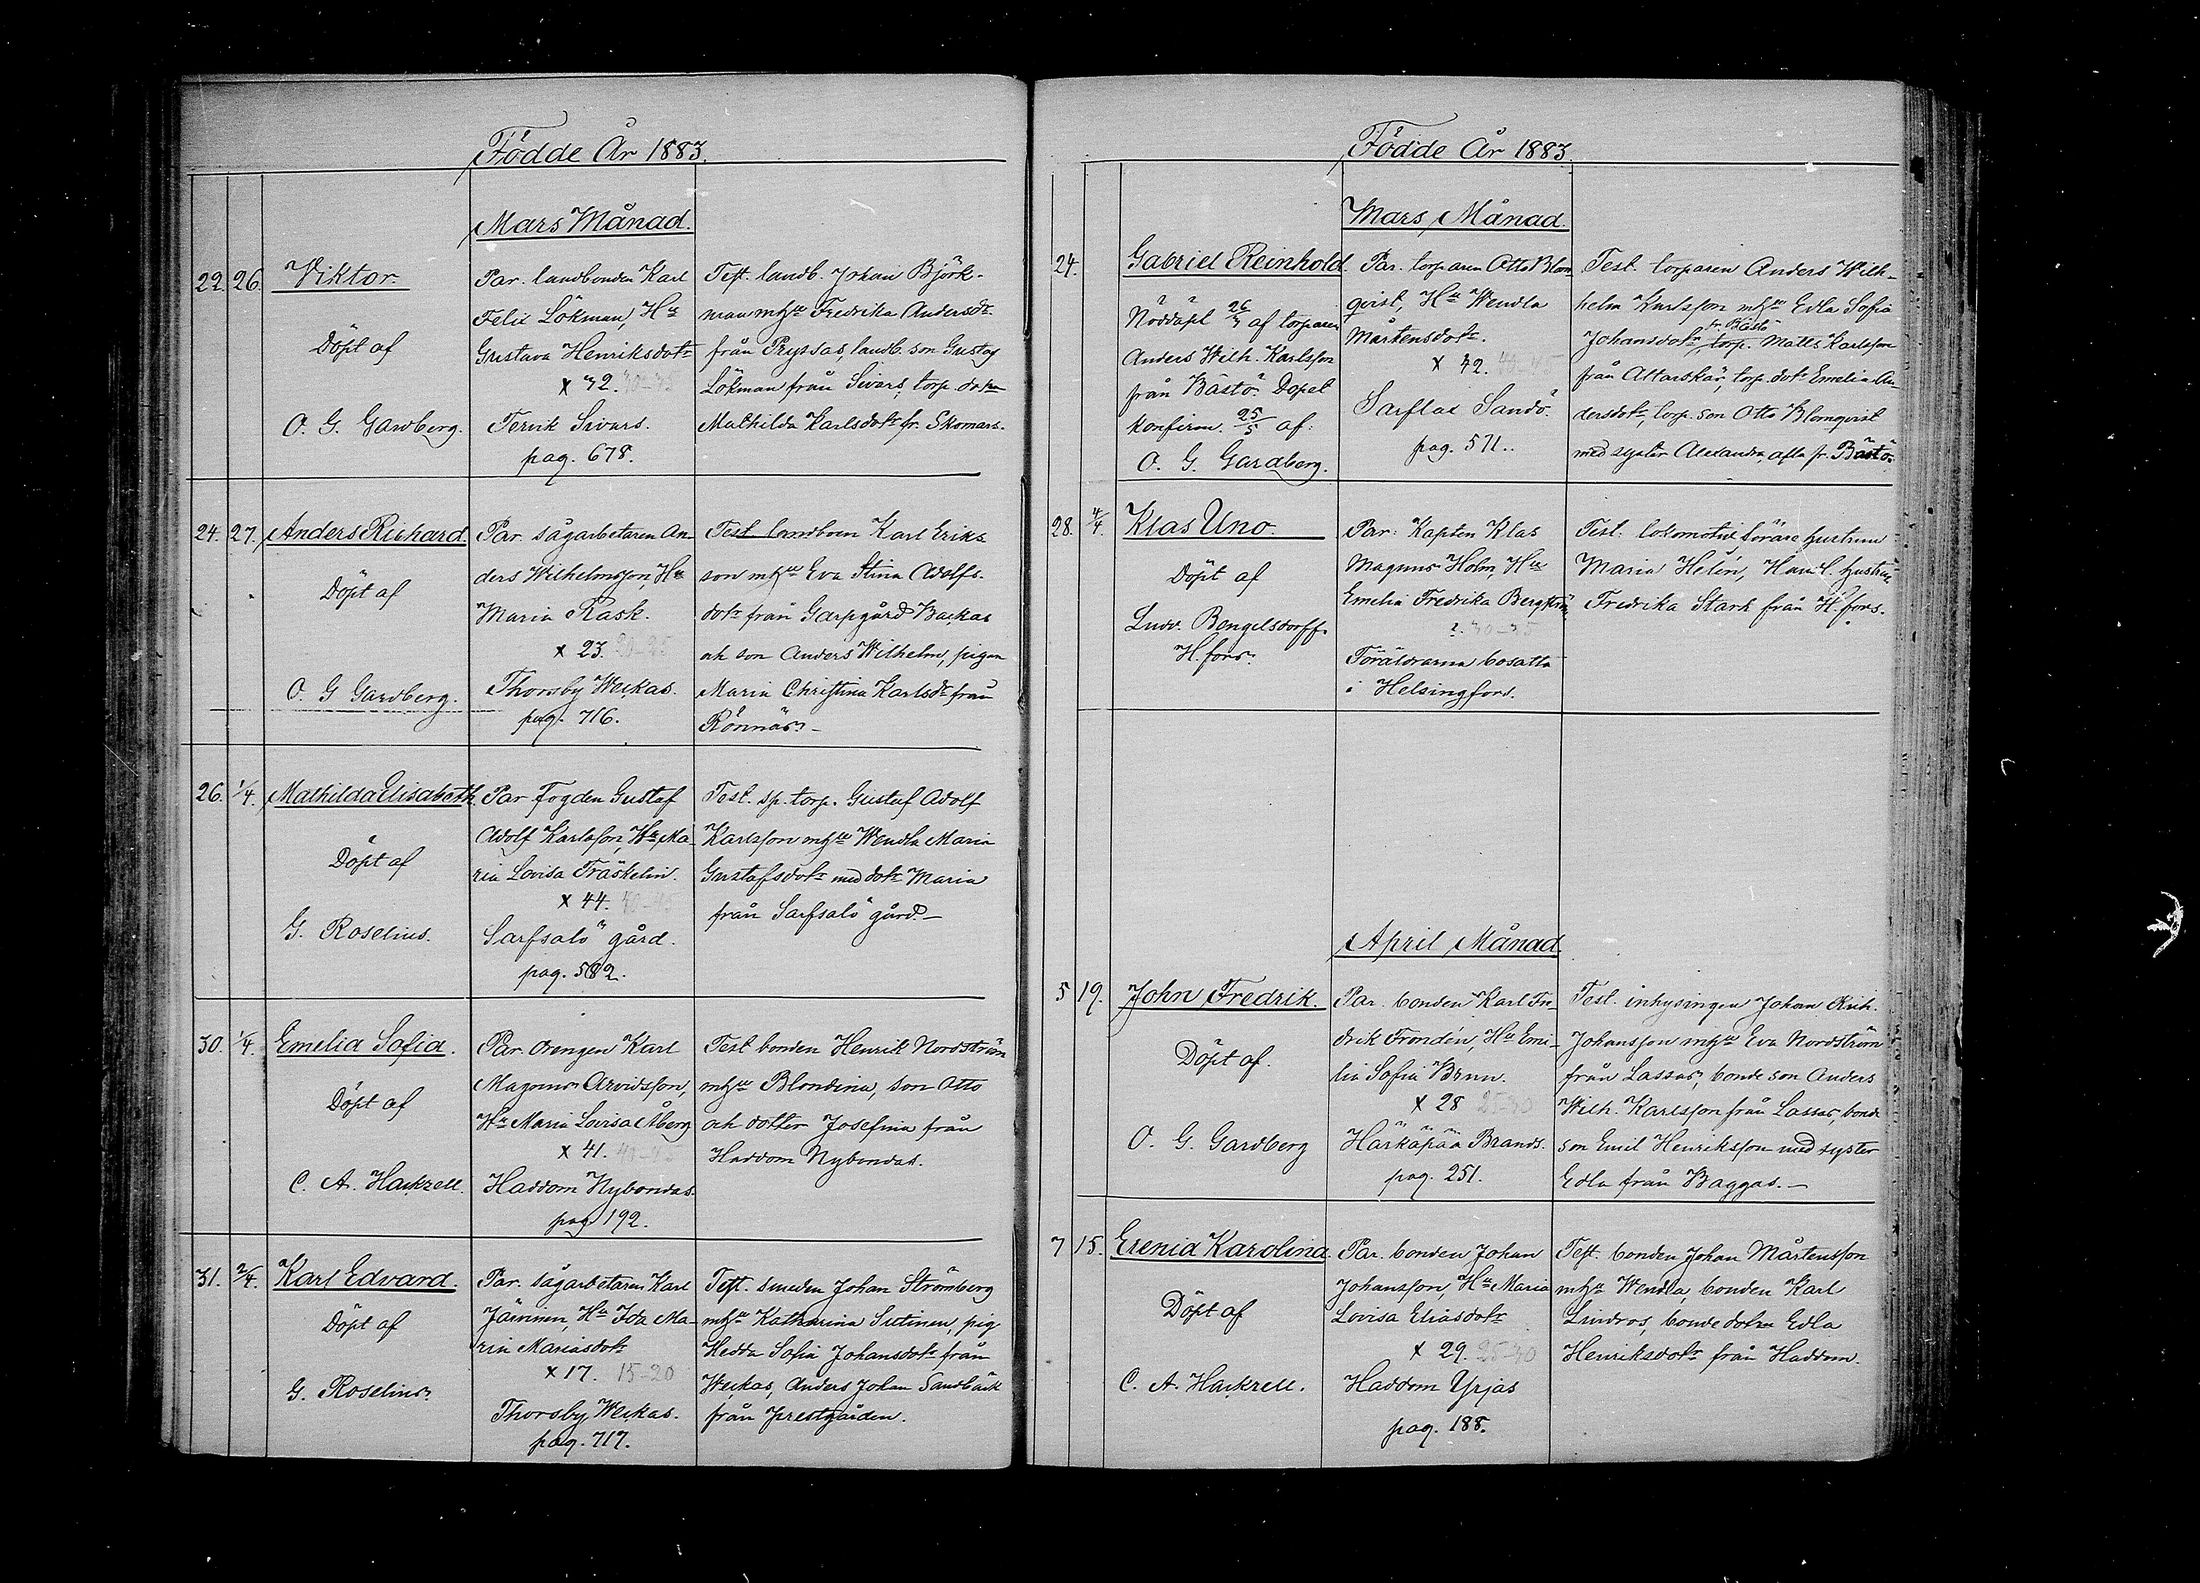 Födde År 1883.
Mars Månad.
22. 26. Viktor.
Döpt af
O. G. Gardberg.
Par. landbonden Karl
Felix Lökman, Hu
Gustava Henriksdotr
x 32. 30-35
Tervik Sivars.
pag. 678.
Test. landb. Johan Björk-
man mhu Fredrika Andersdr
från Pryssas, landb. son Gustaf
Lökman från Sivars, torp. dotn
Mathilda Karlsdotr fr. Skomars.
24. 27. Anders Richard.
Döpt af
O. G Gardberg.
Par sågarbetaren An-
ders Wilhelmsson, Hu
Maria Rask.
x 23.
Thorsby Weckas.
pag. 716.
Test landboen Karl Eriks
son mhu Eva Stina Adolfs-
dotr från Garpgård Backas
och son Anders Wilhelm, pigan
Maria Christina Karlsdr från
Rönnäs.-
26. 1/4. Mathilda Elisabeth.
Döpt af
G. Roselius.
Par Fogden Gustaf
Adolf Karlsson, Hu Ma-
ria Lovisa Träskelin.
x 44.
Sarfsalö gård.
pag. 582.
Test. sp. torp. Gustaf Adolf
Karlsson mhu Wendla Maria
Gustafsdotr med dotr Maria
från Sarfsalö gård.-
30. 1/4. Emelia Sofia.
Döpt af
C. A. Hackzell.
Par. drengen Karl
Magnus Arvidsson,
Hu Maria Lovisa Åberg
x 41. 40-45
Haddom Nybondas.
pag 192.
Test bonden Henrik Nordström
mhu Blondina, son Otto
och dotter Josefina från
Haddom Nybondas.
31. 2/4. Karl Edvard.
Döpt af
G. Roselius.
Par. sågarbetaren Karl
Järvinen, Hu Ida Ma-
ria Mariasdotr
x 17. 15-20
Thorsby Weckas.
pag. 717.
Test. smeden Johan Strömberg
mhu Katharina Sutinen, pig.
Hedda Sofia Johansdotr från
Weckas, Anders Johan Sandbäck
från prestgården.
Födde År 1883.
Mars Månad.
24. Gabriel Reinhold.
Nöddöpt 26/3 af torparen
Anders Wilh. Karlsson
från Båstö. Dopet
konfirm. 25/5 af:
O. G. Gardberg.
Par. torparen Otto Blom
qvist, Hu Wendla
Mårtensdotr.
x 42.
Sarflax Sandö.
pag. 571.
Test. torparen Anders Wilh-
helm Karlsson mhu Edla Sofia
fr. Båstö
Johansdotr, torp. Matts Karlsson
från Altarskär, torp. dotr Emelia An-
dersdotr, torp. son Otto Blomqvist
med syster Alexandra, alla fr. Båstö
28. 4/4. Klas Uno.
Döpt af
Ludv. Bengelsdorff.
H.fors.
Par: Kapten Klas
Magnus Holm, Hu
Emelia Fredrika Bergström
?. 30-35
Föräldrarna bosatta
i Helsingfors.
Test: lokomotivförare hustrun
Maria Helin, Handl. hustrun
Fredrika Stark från H.fors.
April Månad
5 19. John Fredrik.
Döpt af.
O. G. Gardberg
Par. bonden Karl Fre
drik Frondén, Hu Emi-
lia Sofia Brun.
x 28 25-30
Härkäpää Brands.
pag. 251.
Test. inhysingen Johan Erik.
Johansson mhu Eva Nordström
från Lassas, bonde son Anders
Wilh. Karlsson från Lassas, bonde
son Emil Henriksson med syster
Edla från Baggas.-
7 15. Erenia Karolina
Döpt af
C. A. Hackzell.
Par. bonden Johan
Johansson, Hu Maria
Lovisa Eliasdotr
x 29. 25-30
Haddom Yrjas
pag. 188.
Test. bonden Johan Mårtensson
mhu Wendla, bonden Karl
Lindros, bonde dotrn Edla
Henriksdotr från Haddom.